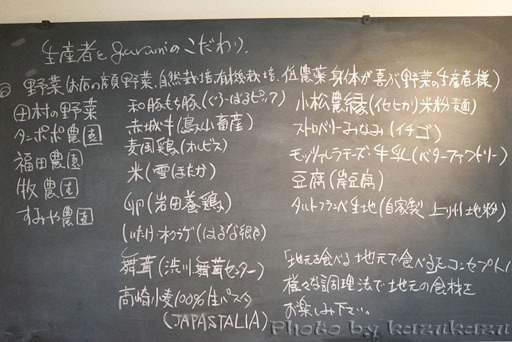 生産者と gurumiのこだわり
野菜(お店の顔野菜,自然栽培有機栽培、低農薬 身体が喜ぶ野菜の生産者様)
田村の野菜
タンポポ農園
福田農園
牧農園
すみや農園
和豚もち豚(ぐろーばるピッグ)
赤城牛(鳥山畜産)
麦国鶏(オルビス)
米(雪ほたか)
卵(岩田養鶏)
しいたけ・キクラゲ(はるな郷)
舞茸(渋川舞茸センター)
高崎小麦100%生パスタ
(JAPASTALIA)
小松農縁(イセヒカリ 米粉麺)
ストロベリーみなみ(イチゴ)
モッツァレラチーズ・牛乳(ベターファクトリー)
豆腐(豆腐)
タルトフランベ生地(自家製 上州地粉)
「地元を食べる 地元で食べる」をコンセプトに
様々な調理法で地元の食材を
お楽しみ下さい。
Photo by kazukazu